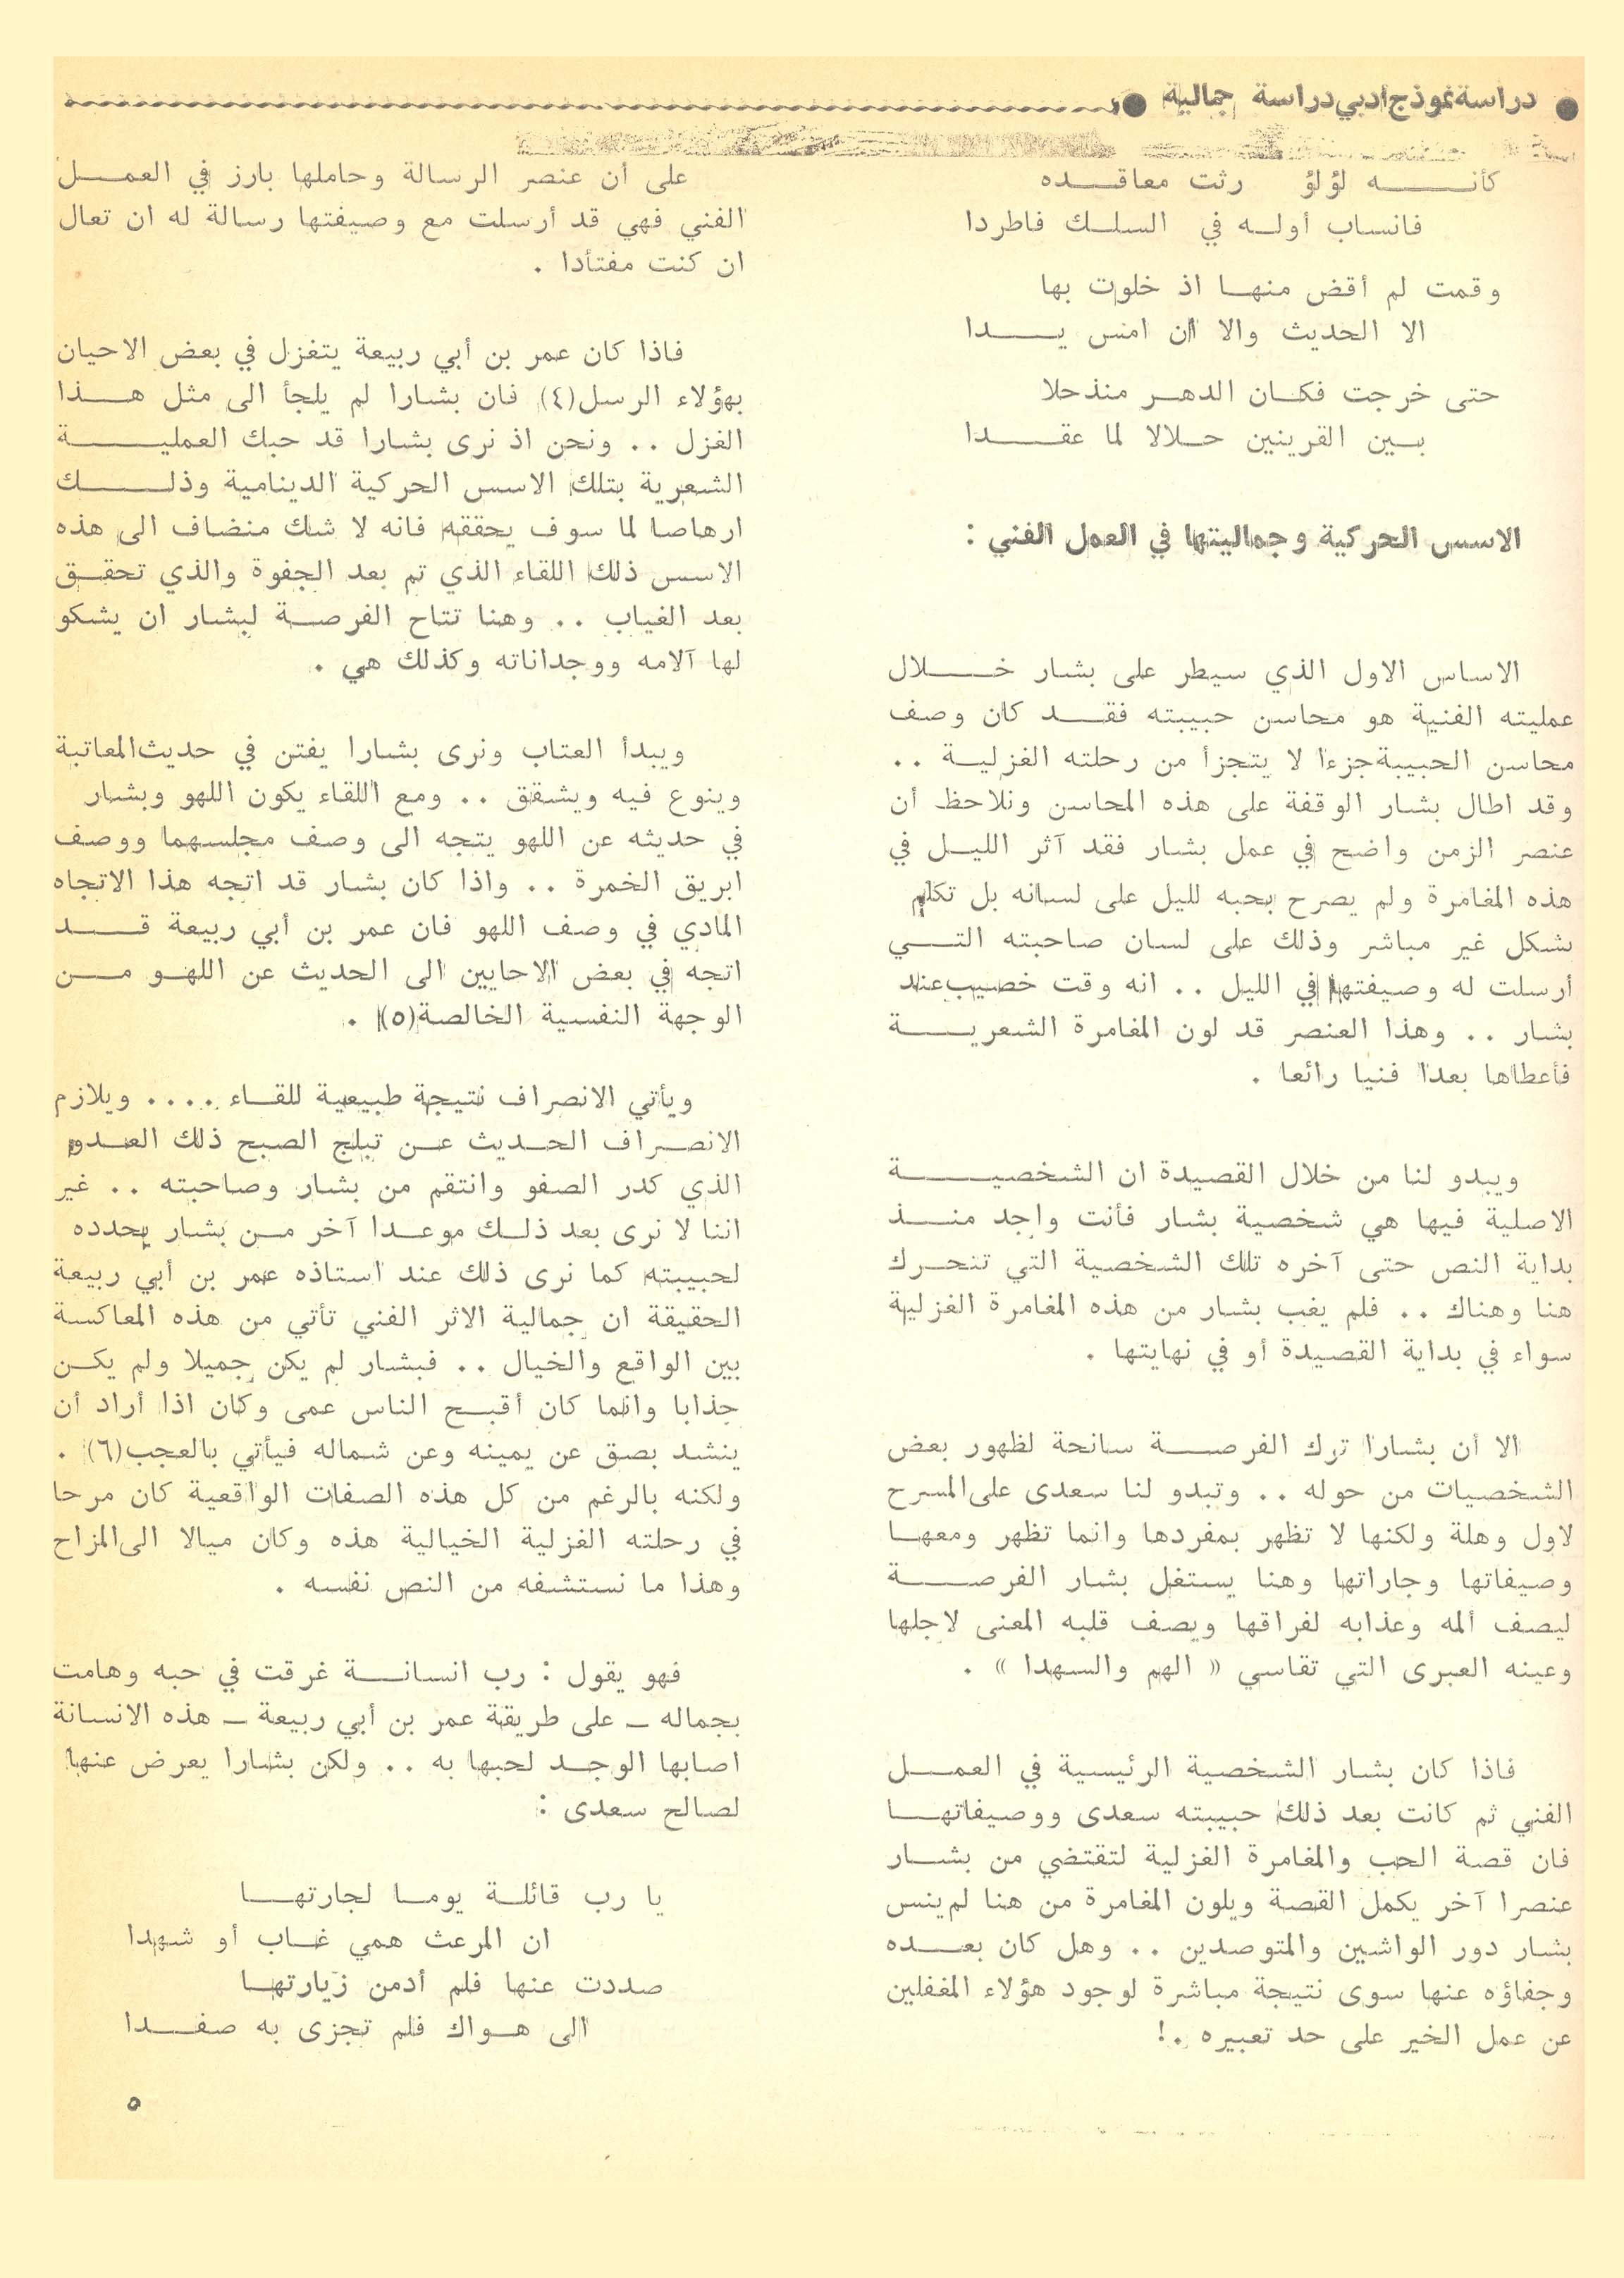 دراسة نموذج أدبي دراسة جمالية
كأنه لؤلؤ رثت معاقده
فانساب أوله في السلك فاطردا
وقمت لم أقض منها اذ خلوت بها
الا الحديث والا ان امس يدا
حتى خرجت فكان الدهر منذ حلا
بين القرينين حلالا لما عقدا
الاسس الحركية وجماليتها في العمل الفني :
الاساس الاول الذي سيطر على بشار خلال
عمليته الفنية هو محاسن حبيبته فقد كان وصف
محاسن الحبيبة جزءا لا يتجزأ من رحلته الغزلية ..
وقد اطال بشار الوقفة على هذه المحاسن ونلاحظ أن
عنصر الزمن واضح في عمل بشار فقد آثر الليل في
هذه المغامرة ولم يصرح بحبه لليل على لسانه بل تكلم
بشكل غير مباشر وذلك على لسان صاحبته التي
أرسلت له وصيفتها في الليل .. انه وقت خصيب عند
بشار .. وهذا العنصر قد لون المغامرة الشعرية
فأعطاها بعدا فنيا رائعا .
ويبدو لنا من خلال القصيدة ان الشخصية
الاصلية فيها هي شخصية بشار فأنت واجد منذ
بداية النص حتى آخره تلك الشخصية التي تتحرك
هنا وهناك .. فلم يغب بشار من هذه المغامرة الغزلية
سواء في بداية القصيدة أو في نهايتها .
الا أن بشارا ترك الفرصة سانحة لظهور بعض
الشخصيات من حوله .. وتبدو لنا سعدى على المسرح
لاول وهلة ولكنها لا تظهر بمفردها وانما تظهر ومعها
وصيفاتها وجاراتها وهنا يستغل بشار الفرصة
ليصف ألمه وعذابه لفراقها ويصف قلبه المعنى لاجلها
وعينه العبرى التي تقاسي « الهم والسهدا » .
فاذا كان بشار الشخصية الرئيسية في العمل
الفني ثم كانت بعد ذلك حبيبته سعدى ووصيفاتها
فان قصة الحب والمغامرة الغزلية لتقتضي من بشار
عنصرا آخر يكمل القصة ويلون المغامرة من هنا لم ينس
بشار دور الواشين والمتوصدين .. وهل كان بعده
وجفاؤه عنها سوى نتيجة مباشرة لوجود هؤلاء المغفلين
عن عمل الخير على حد تعبيره .!
على أن عنصر الرسالة وحاملها بارز في العمل
الفني فهي قد أرسلت مع وصيفتها رسالة له ان تعال
ان كنت مفتأدا .
فاذا كان عمر بن أبي ربيعة يتغزل في بعض الاحيان
بهؤلاء الرسل (٤) فان بشارا لم يلجأ الى مثل هذا
الغزل .. ونحن اذ نرى بشارا قد حبك العملية
الشعرية بتلك الاسس الحركية الدينامية وذلك
ارهاصا لما سوف يحققه فانه لا شك منضاف الى هذه
الاسس ذلك اللقاء الذي تم بعد الجفوة والذي تحقق
بعد الغياب .. وهنا تتاح الفرصة لبشار ان يشكو
لها آلامه ووجداناته وكذلك هي .
ويبدأ العتاب ونرى بشارا يفتن في حديث المعاتبة
وينوع فيه ويشقق .. ومع اللقاء يكون اللهو وبشار
في حديثه عن اللهو يتجه الى وصف مجلسهما ووصف
ابريق الخمرة .. واذا كان بشار قد اتجه هذا الاتجاه
المادي في وصف اللهو فان عمر بن أبي ربيعة قد
اتجه في بعض الاحايين الى الحديث عن اللهو من
الوجهة النفسية الخالصة (٥) .
ويأتي الانصراف نتيجة طبيعية للقاء .... ويلازم
الانصراف الحديث عن تبلج الصبح ذلك العدو
الذي كدر الصفو وانتقم من بشار وصاحبته .. غير
اننا لا نرى بعد ذلك موعدا آخر من بشار يحدده
لحبيبته كما نرى ذلك عند استاذه عمر بن أبي ربيعة
الحقيقة ان جمالية الاثر الفني تأتي من هذه المعاكسة
بين الواقع والخيال .. فبشار لم يكن جميلا ولم يكن
جذابا وانما كان أقبح الناس عمى وكان اذا أراد أن
ينشد بصق عن يمينه وعن شماله فيأتي بالعجب (٦) .
ولكنه بالرغم من كل هذه الصفات الواقعية كان مرحا
في رحلته الغزلية الخيالية هذه وكان ميالا الى المزاح
وهذا ما نستشفه من النص نفسه .
فهو يقول : رب انسانة غرقت في حبه وهامت
بجماله ـ على طريقة عمر بن أبي ربيعة ـ هذه الانسانة
اصابها الوجد لحبها به .. ولكن بشارا يعرض عنها
لصالح سعدى :
يا رب قائلة يوما لجارتها
ان المرعث همي غاب أو شهدا
صددت عنها فلم أدمن زيارتها
الى هواك فلم تجزى به صفدا
٥